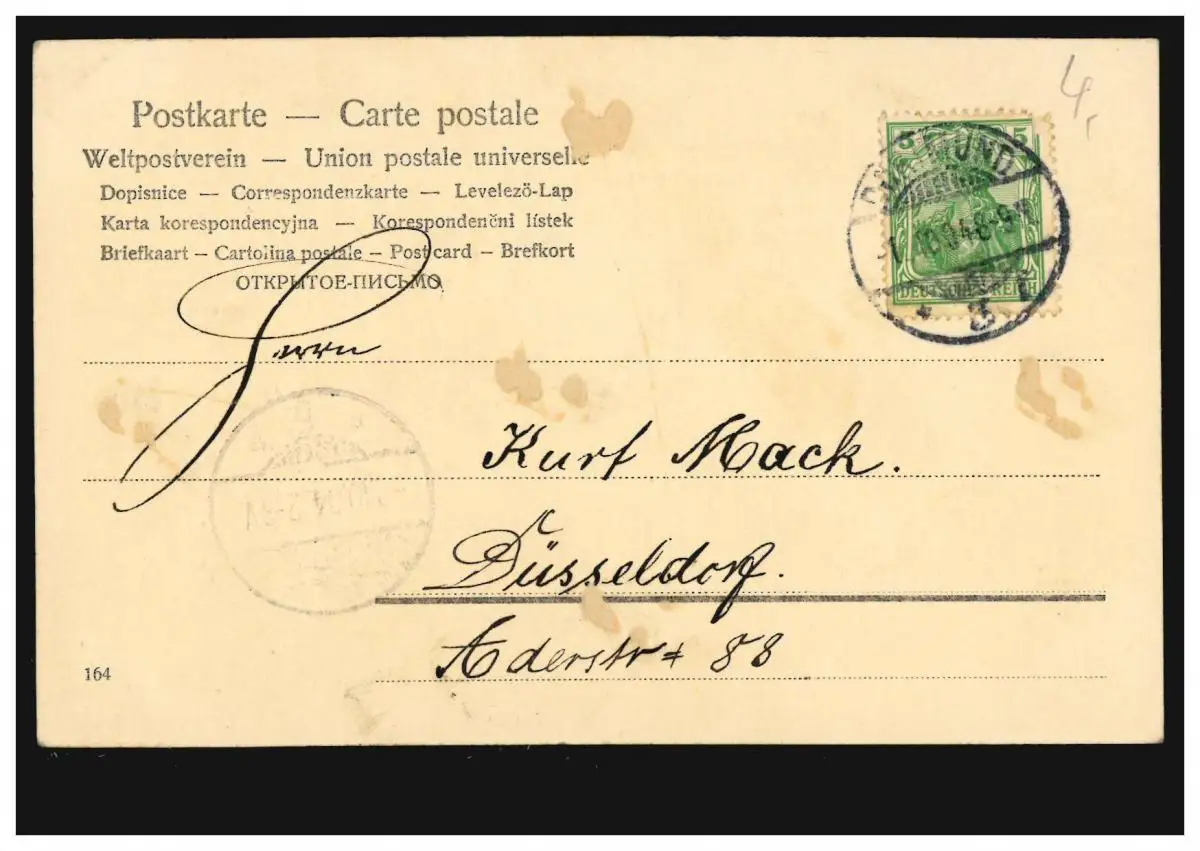 4,
Postkarte — Carte postale
Weltpostverein — Union postale universelle
Dopisnice — Correspondenzkarte — Levelezö-Lap
Karta korespondencyjna — Korespondenční lístek
Briefkaart — Cartolina postale — Post card — Brefkort
ОТКРЫТОЕ-ПИСЬМО
5 5
DEUTSCHES REICH
DORTMUND
Herrn
Kurt Mack.
Düsseldorf.
Aderstr 88
164